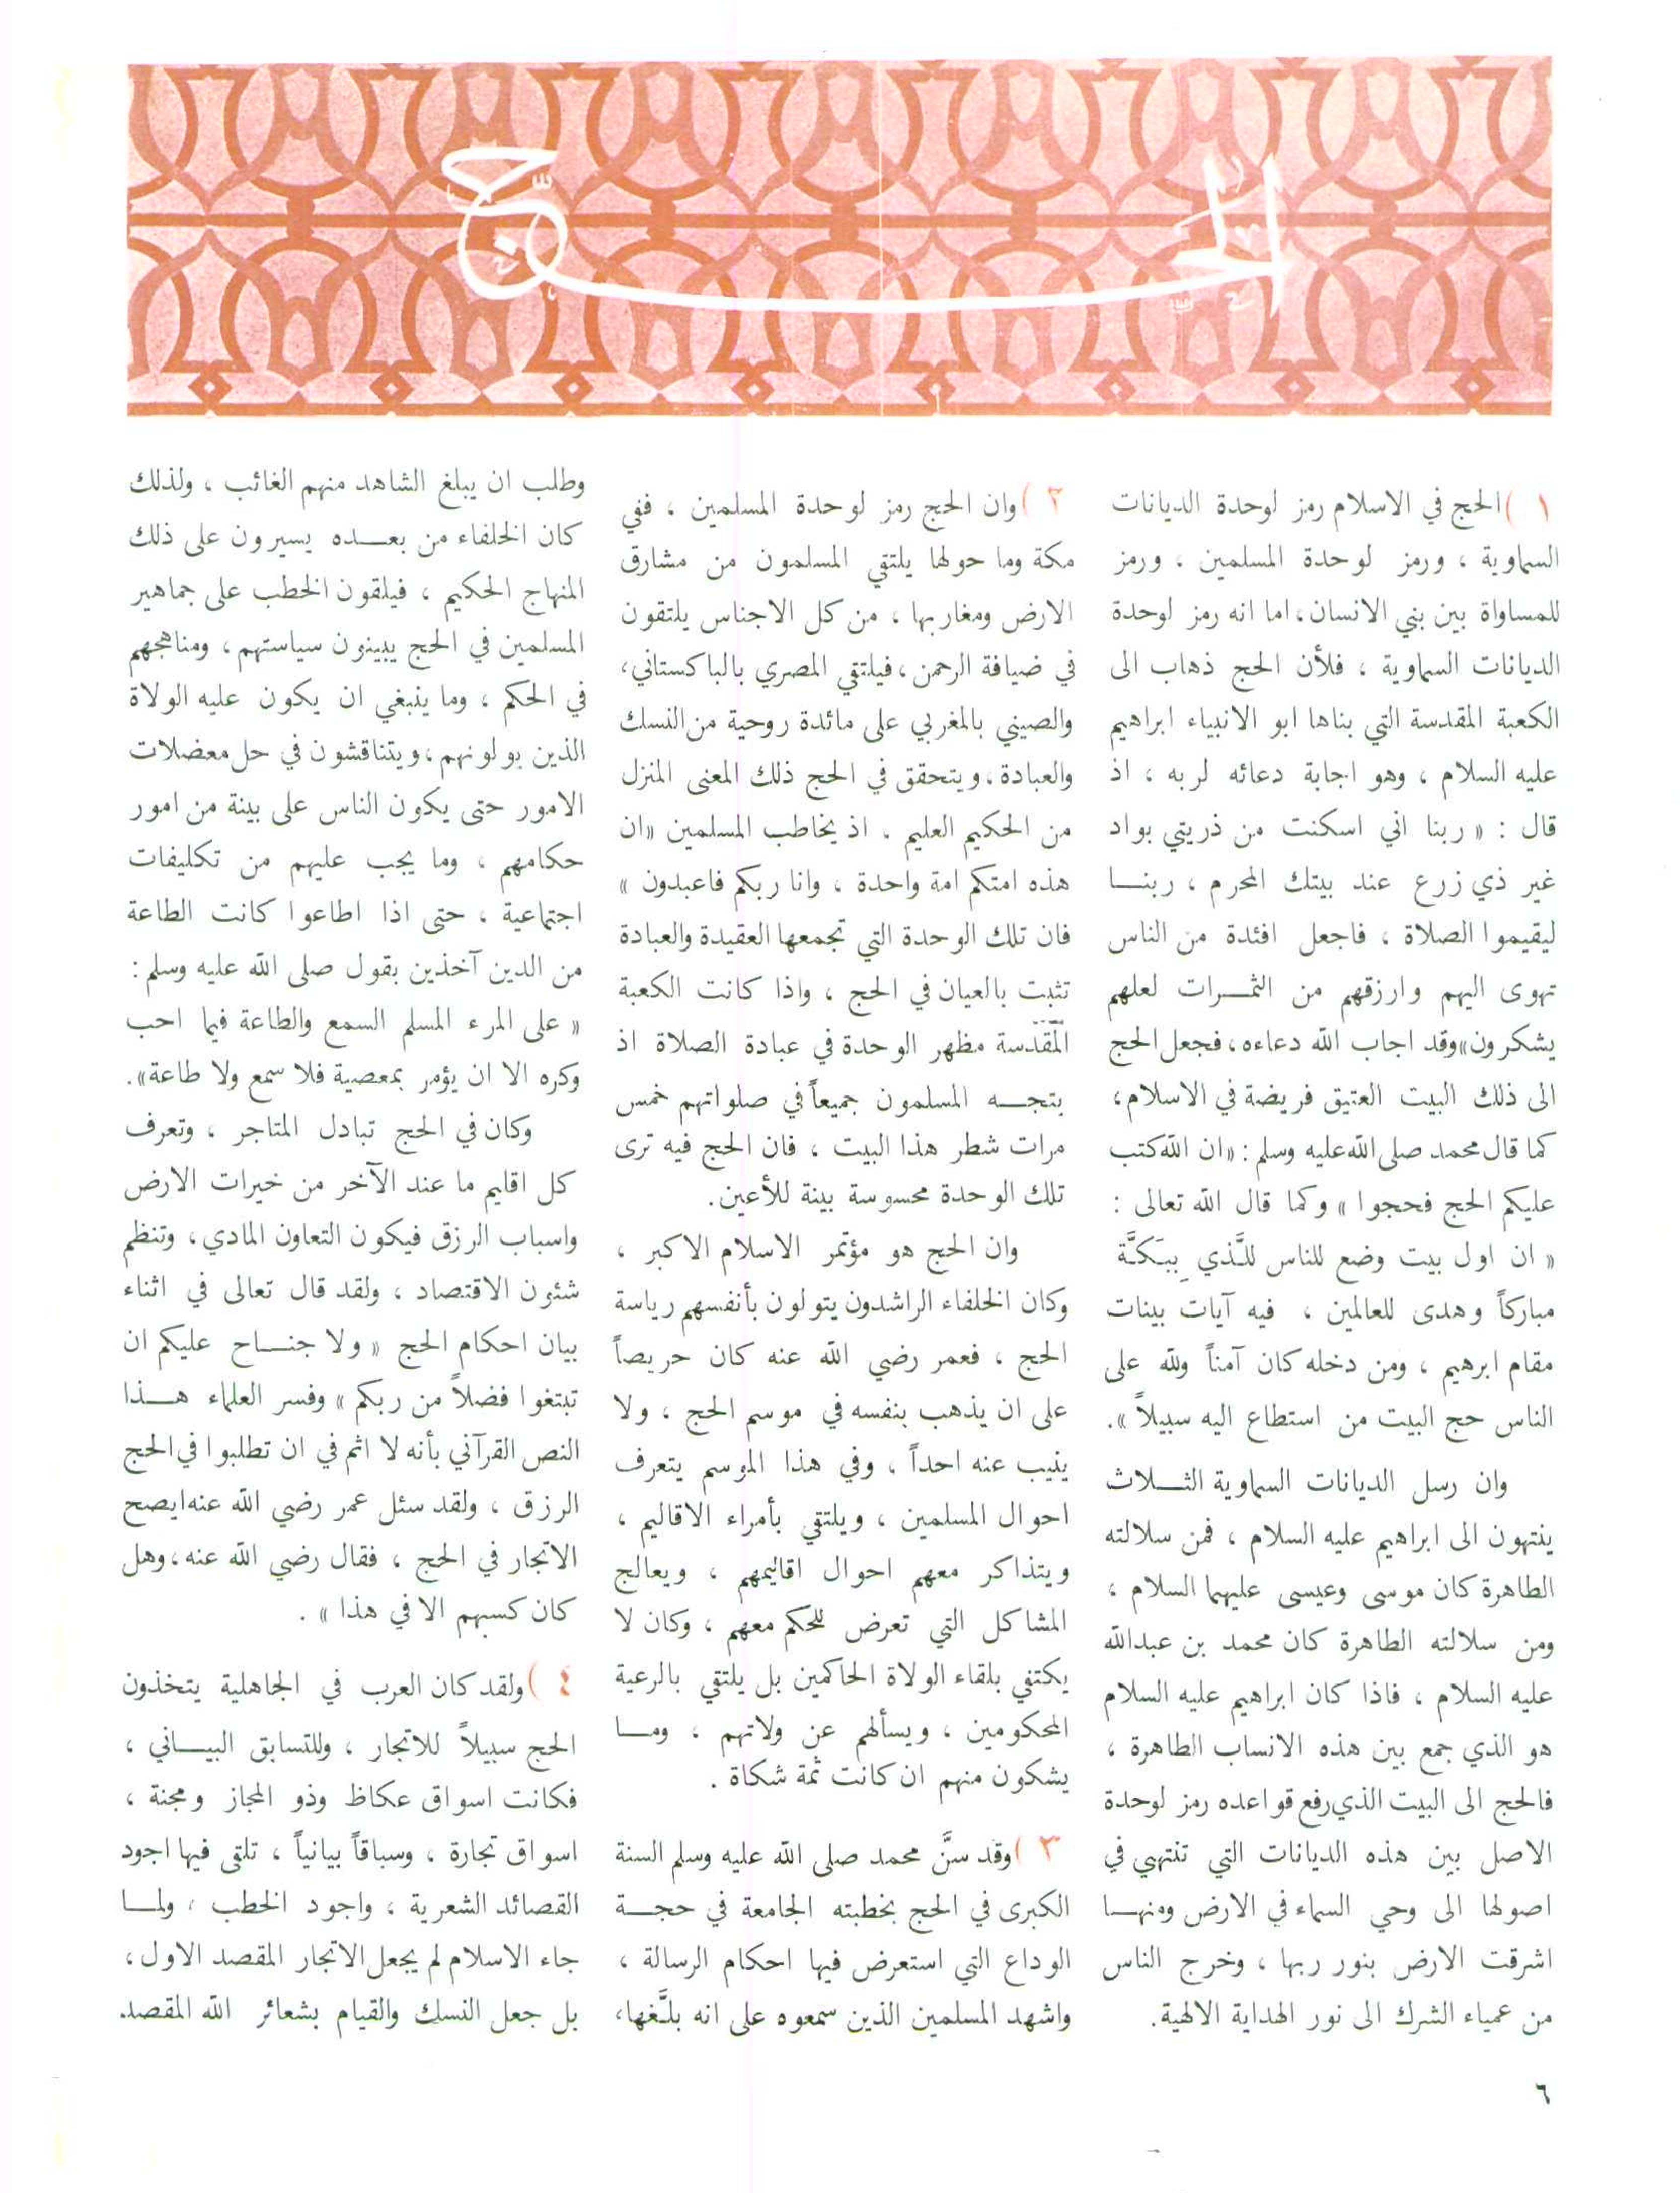 الحج
١) الحج في الاسلام رمز لوحدة الديانات
السماوية ، ورمز لوحدة المسلمين ، ورمز
للمساواة بين بني الانسان، اما انه رمز لوحدة
الديانات السماوية ، فلأن الحج ذهاب الى
الكعبة المقدسة التي بناها ابو الانبياء ابراهيم
عليه السلام ، وهو اجابة دعائه لربه ، اذ
قال : « ربنا اني اسكنت من ذريتي بواد
غير ذي زرع عند بيتك المحرم ، ربنـا
ليقيموا الصلاة ، فاجعل افئدة من الناس
تهوى اليهم وارزقهم من الثمـرات لعلهم
يشكرون» وقد اجاب الله دعاءه، فجعل الحج
الى ذلك البيت العتيق فريضة في الاسلام،
كما قال محمد صلى الله عليه وسلم : «ان الله كتب
عليكم الحج فحجوا » وكما قال الله تعالى :
« ان اول بيت وضع للناس للَّذي بِبَكَّة
مباركاً وهدى للعالمين ، فيه آيات بينات
مقام ابرهيم ، ومن دخله كان آمناً ولله على
الناس حج البيت من استطاع اليه سبيلاً ».
وان رسل الديانات السماوية الثـلاث
ينتهون الى ابراهيم عليه السلام ، فمن سلالته
الطاهرة كان موسى وعيسى عليهما السلام ،
ومن سلالته الطاهرة كان محمد بن عبدالله
عليه السلام ، فاذا كان ابراهيم عليه السلام
هو الذي جمع بين هذه الانساب الطاهرة ،
فالحج الى البيت الذي رفع قواعده رمز لوحدة
الاصل بين هذه الديانات التي تنتهي في
اصولها الى وحي السماء في الارض ومنهـا
اشرقت الارض بنور ربها ، وخرج الناس
من عمياء الشرك الى نور الهداية الالهية.
٢) وان الحج رمز لوحدة المسلمين ، ففي
مكة وما حولها يلتقي المسلمون من مشارق
الارض ومغاربها ، من كل الاجناس يلتقون
في ضيافة الرحمن، فيلتقي المصري بالباكستاني،
والصيني بالمغربي على مائدة روحية من النسك
والعبادة، ويتحقق في الحج ذلك المعنى المنزل
من الحكيم العليم ، اذ يخاطب المسلمين «ان
هذه امتكم امة واحدة ، وانا ربكم فاعبدون »
فان تلك الوحدة التي تجمعها العقيدة والعبادة
تثبت بالعيان في الحج ، واذا كانت الكعبة
المقدّسة مظهر الوحدة في عبادة الصلاة اذ
يتجـه المسلمون جميعاً في صلواتهم خمس
مرات شطر هذا البيت ، فان الحج فيه ترى
تلك الوحدة محسوسة بينة للأعين.
وان الحج هو مؤتمر الاسلام الاكبر ،
وكان الخلفاء الراشدون يتولون بأنفسهم رياسة
الحج ، فعمر رضي الله عنه كان حريصاً
على ان يذهب بنفسه في موسم الحج ، ولا
ينيب عنه احداً ، وفي هذا الموسم يتعرف
احوال المسلمين ، ويلتقي بأمراء الاقاليم ،
ويتذاكر معهم احوال اقاليمهم ، ويعالج
المشاكل التي تعرض للحكم معهم ، وكان لا
يكتفي بلقاء الولاة الحاكمين بل يلتقي بالرعية
المحكومين ، ويسألهم عن ولاتهم ، ومـا
يشكون منهم ان كانت ثمة شكاة .
٣) وقد سنَّ محمد صلى الله عليه وسلم السنة
الكبرى في الحج بخطبته الجامعة في حجـة
الوداع التي استعرض فيها احكام الرسالة ،
واشهد المسلمين الذين سمعوه على انه بلَّغها،
وطلب ان يبلغ الشاهد منهم الغائب ، ولذلك
كان الخلفاء من بعـده يسيرون على ذلك
المنهاج الحكيم ، فيلقون الخطب على جماهير
المسلمين في الحج يبينون سياستهم، ومناهجهم
في الحكم ، وما ينبغي ان يكون عليه الولاة
الذين يولونهم، ويتناقشون في حل معضلات
الامور حتى يكون الناس على بينة من امور
حكامهم ، وما يجب عليهم من تكليفات
اجتماعية ، حتى اذا اطاعوا كانت الطاعة
من الدين آخذين بقول صلى الله عليه وسلم :
« على المرء المسلم السمع والطاعة فيما احب
وكره الا ان يؤمر بمعصية فلا سمع ولا طاعة».
وكان في الحج تبادل المتاجر ، وتعرف
كل اقليم ما عند الآخر من خيرات الارض
واسباب الرزق فيكون التعاون المادي، وتنظم
شئون الاقتصاد ، ولقد قال تعالى في اثناء
بيان احكام الحج « ولا جنـاح عليكم ان
تبتغوا فضلاً من ربكم » وفسر العلماء هـذا
النص القرآني بأنه لا اثم في ان تطلبوا في الحج
الرزق ، ولقد سئل عمر رضي الله عنه ايصح
الاتجار في الحج ، فقال رضي الله عنه، وهل
كان كسبهم الا في هذا » .
٤) ولقد كان العرب في الجاهلية يتخذون
الحج سبيلاً للاتجار ، وللتسابق البيـاني ،
فكانت اسواق عكاظ وذو المجاز ومجنة ،
اسواق تجارة ، وسباقاً بيانياً ، تلقى فيها اجود
القصائد الشعرية ، واجود الخطب ، ولمـا
جاء الاسلام لم يجعل الاتجار المقصد الاول،
بل جعل النسك والقيام بشعائر الله المقصد.
٦